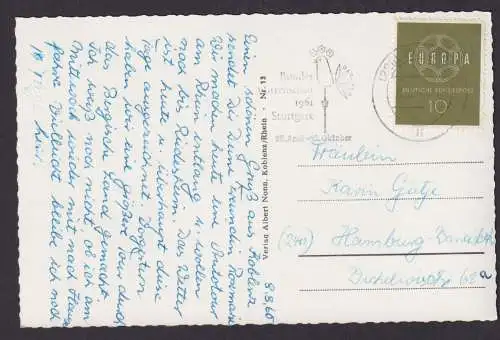 8.8.60
Einen schönen Gruß aus Koblenz
sendet Dir Deine Freundin Rosemarie
Wir machen heute eine Autotour
am Rhein entlang u. wollen
noch bis Rüdesheim. Das Wetter
ist heute u. überhaupt diese
Tage ausgezeichnet. Gestern
haben wir eine größere Tour durch
das Bergische Land gemacht.
Ich weiß noch nicht ob ich am
Mittwoch wieder mit nach Hause
fahre. Vielleicht bleibe ich noch
hier.
Verlag Albert Nonn, Koblenz/Rhein Nr. 13
Bundes
gartenschau
1961
Stuttgart
Oktober
EUROPA
DEUTSCHE BUNDESPOST
10
Fräulein
Karin
Hamburg
68a